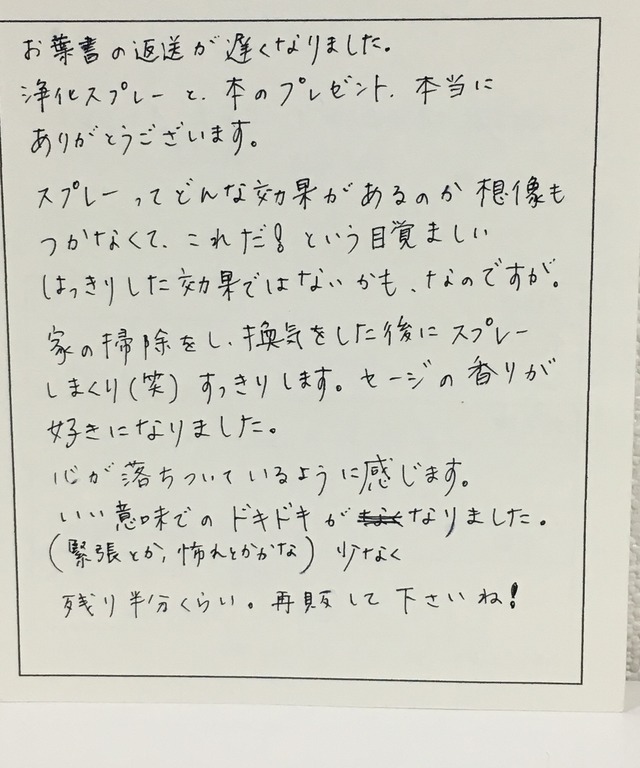 お葉書の返送が遅くなりました。
浄化スプレーと、本のプレゼント、本当に
ありがとうございます。
スプレーってどんな効果があるのか想像も
つかなくて、これだ!という目覚ましい
はっきりした効果ではないかも、なのですが。
家の掃除をし、換気をした後にスプレー
しまくり(笑)すっきりします。セージの香りが
好きになりました。
心が落ちついているように感じます。
いい意味でのドキドキがなりました。
(緊張とか、怖れとかかな)少なく
残り半分くらい。再販して下さいね!